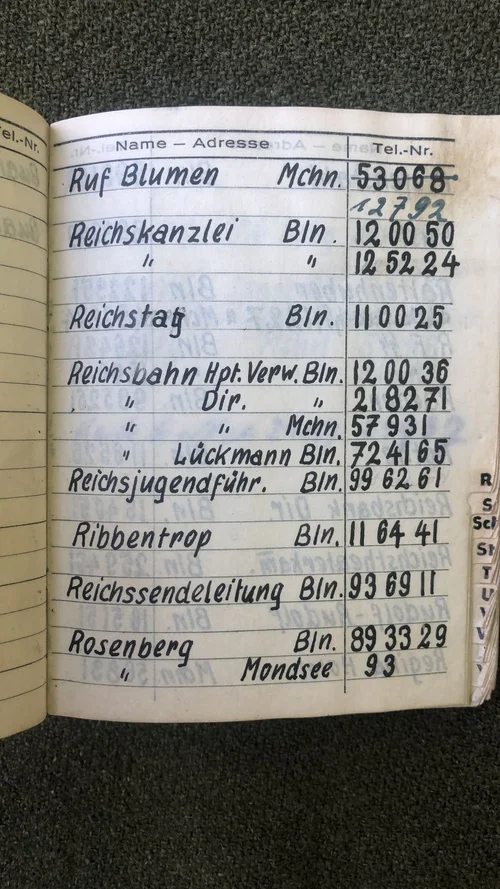 el.-Nr.
Name – Adresse Tel.-Nr.
Ruf Blumen Mchn. 53068
12792
Reichskanzlei Bln. 12 00 50
" " 12 52 24
Reichstag Bln. 11 00 25
Reichsbahn Hpt. Verw. Bln. 12 00 36
" Dir. " 218271
" " Mchn. 57931
" Lückmann Bln. 724165
Reichsjugendführ. Bln. 99 62 61
Ribbentrop Bln. 11 64 41
Reichssendeleitung Bln. 93 69 11
Rosenberg Bln. 89 33 29
" Mondsee 93
R
S
Sch
St
T
U
V